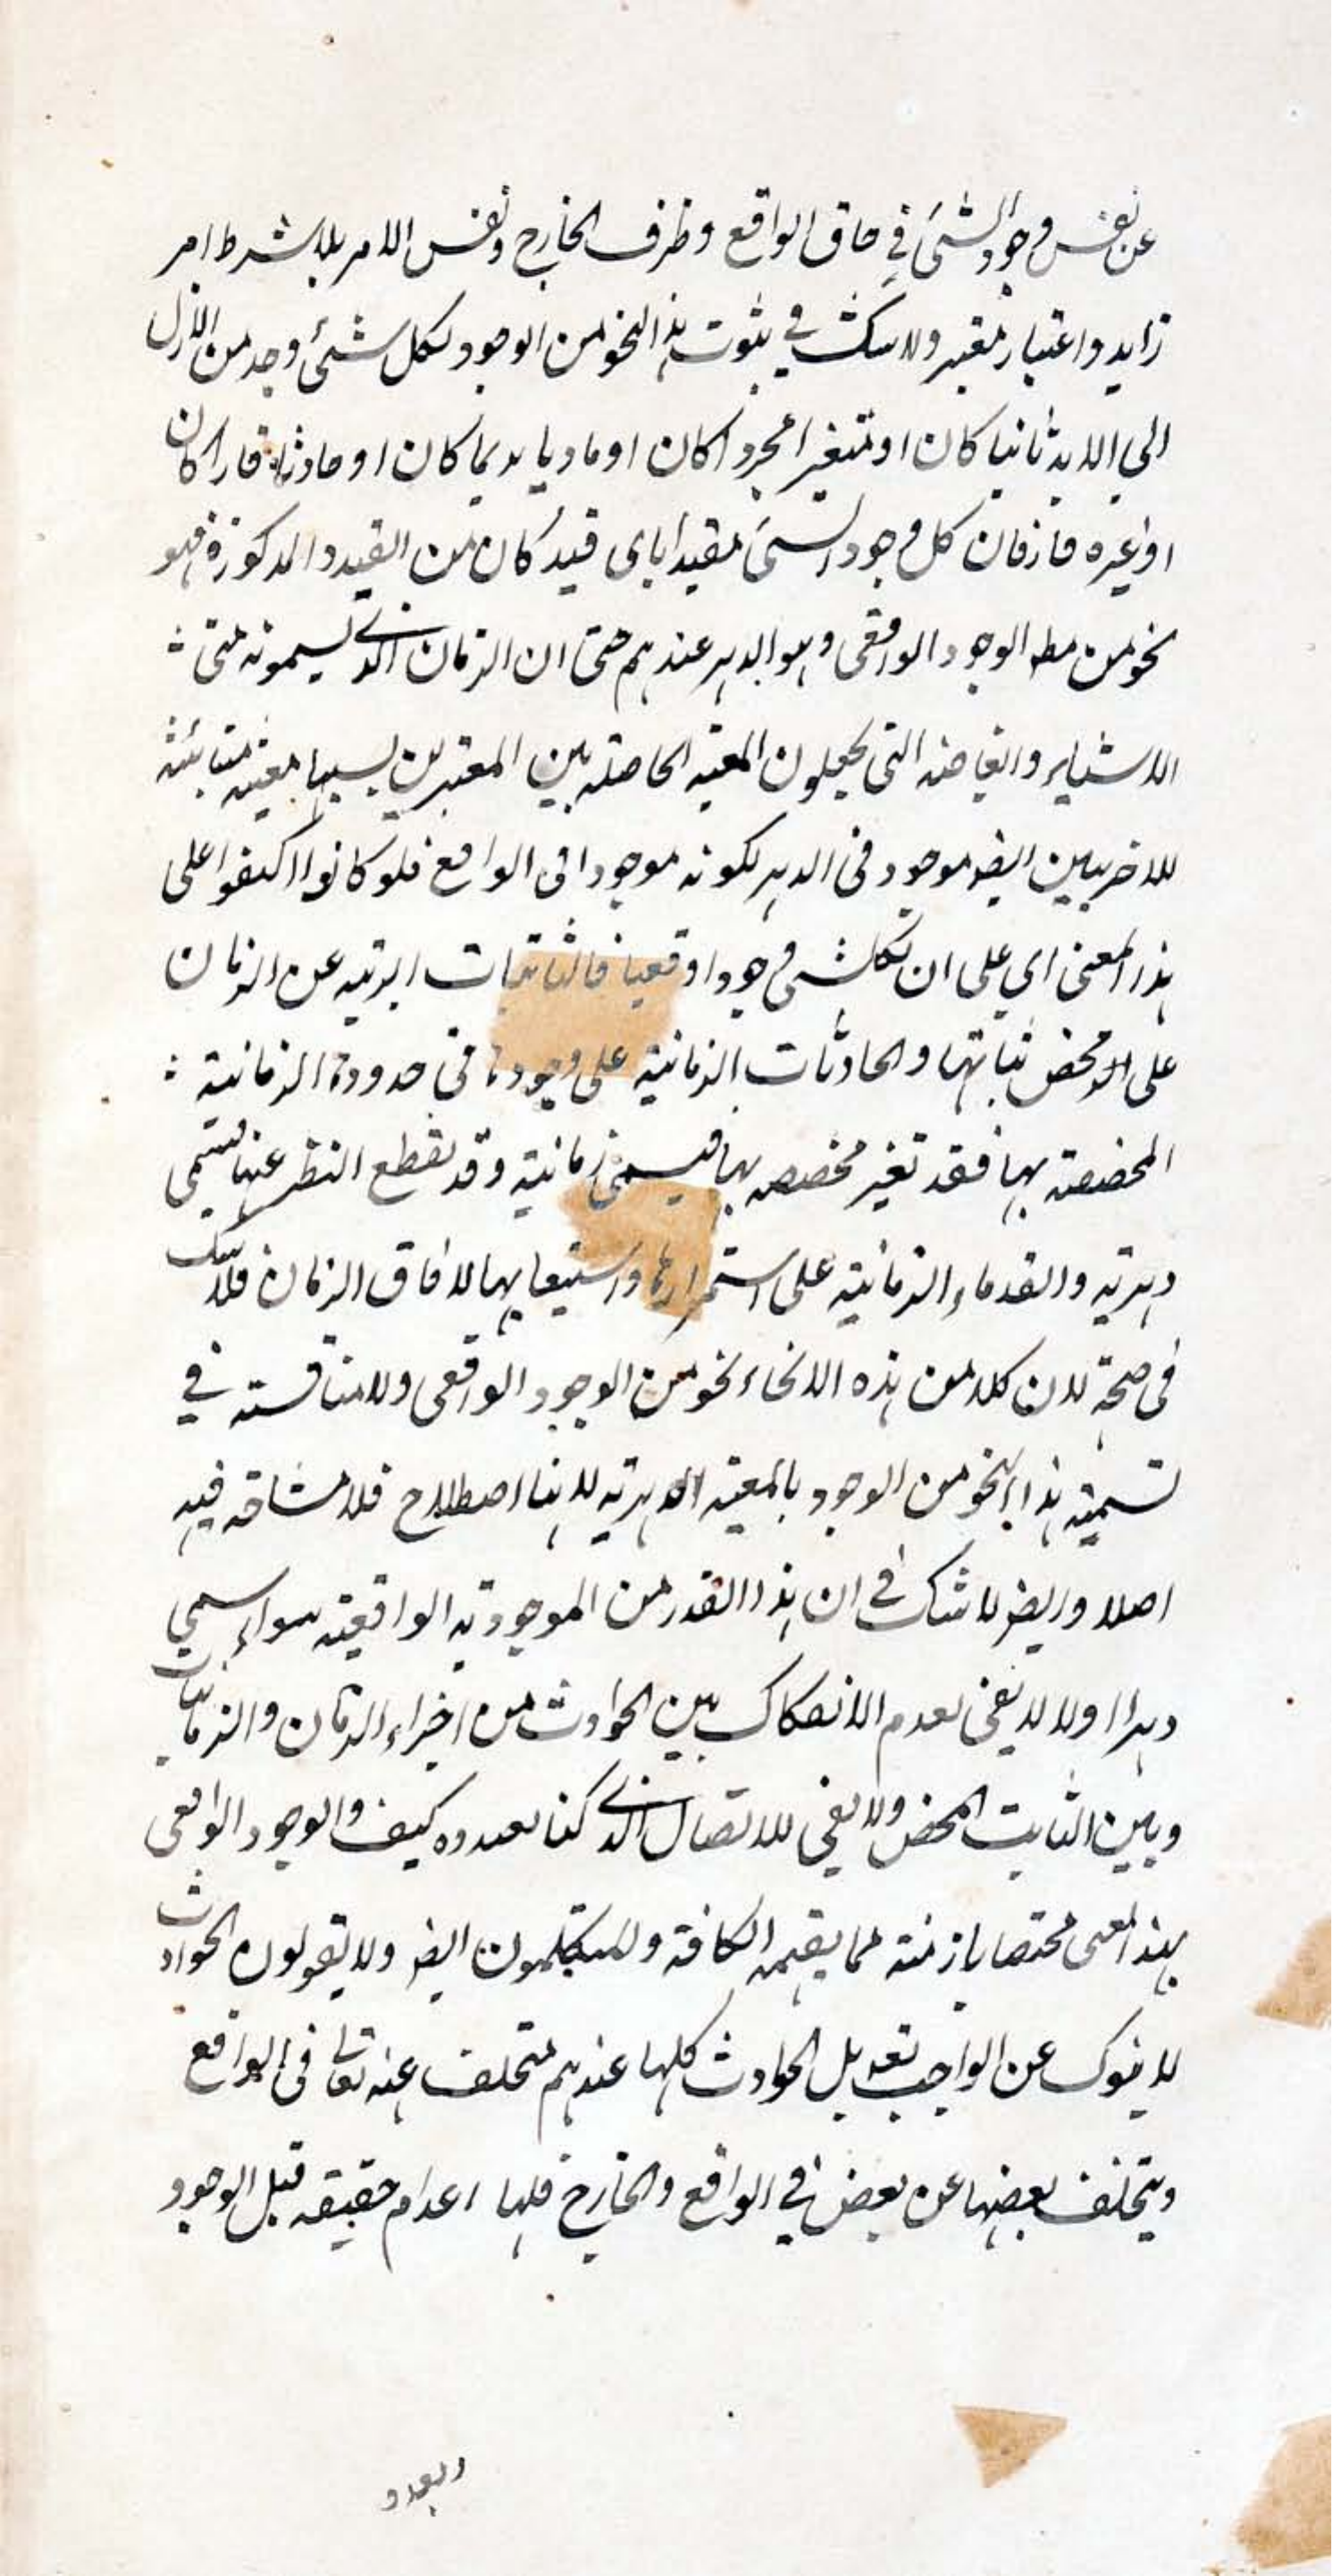 عن نفس وجود الشئ في حاق الواقع وظرف الخارج ونفس الامر بلا شرط امر
زايد واعتبار معتبر ولا شك في ثبوت هذا النحو من الوجود لكل شئ وجد من الازل
الى الابد ثابتا كان او متغيرا مجردا كان او ماديا قديما كان او حادثا قارا كان
او غيره فان كل وجود الشئ مقيدا باى قيد كان من القيود المذكورة فهو
نحو من مط الوجود الواقعى وهو الدهر عندهم حتى ان الزمان الذى يسمونه متى
الاشياء التى يجعلون المعية الحاصلة بين المعتبرين بسببها معية متباينة
للاخريين ايضا موجود فى الدهر لكونه موجودا فى الواقع فلو كانوا اكتفوا على
هذا المعنى اى على ان لكل شئ وجودا واقعيا فالثابتات ابرية عن الزمان
على محض ثباتها والحادثات الزمانية على وجودها فى حدودها الزمانية
المخصصة بها فقد تعتبر مخصصه بها فيسمى زمانية وقد يقطع النظر عنها فيسمى
دهرية والقدماء الزمانية على استمرارها واستيعابها لافاق الزمان فلا شك
فى صحته لان كلا من هذه الانحاء نحو من الوجود الواقعى ولا مناقشة في
تسمية هذا النحو من الوجود بالمعية الدهرية لانها اصطلاح فلا مشاحة فيه
اصلا وايضا لا شك في ان هذا القدر من الموجودية الواقعية سواء سمي
دهرا اولا لا يفى بعدم الانفكاك بين الحوادث من اجزاء الزمان والزمانيات
وبين الثابت المحض ولا يفى للاتصال الذى كنا بصدده كيف والوجود الواقعى
بهذا المعنى مختصا بازمنة مما يفهمه الكافة والمتكلمون ايضا ولا يقولون الحوادث
لا ينفك عن الواجب تعالى بل الحوادث كلها عندهم متخلف عنه تعالى فى الواقع
ويتخلف بعضها عن بعض في الواقع والخارج فلها اعدام حقيقة قبل الوجود